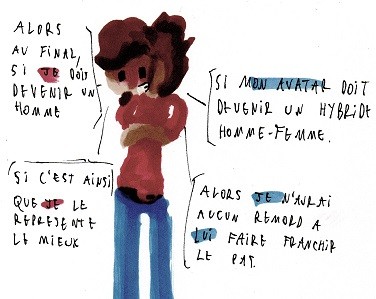 ALORS
AU FINAL,
SI JE DOIS
DEVENIR UN
HOMME
SI MON AVATAR DOIT
DEVENIR UN HYBRIDE
HOMME-FEMME.
SI C'EST AINSI
QUE JE LE
REPRESENTE
LE MIEUX
ALORS JE N'AURAI
AUCUN REMORD A
LUI FAIRE FRANCHIR
LE PAS.